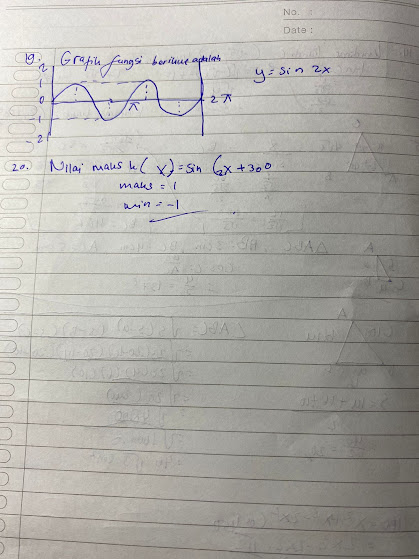 No. :
Date :
19. Grafik fungsi berikut adalah
y = sin 2x
2
1
0
-1
-2
π
2π
20. Nilai maks k(x) = sin (2x + 300
maks = 1
min = -1